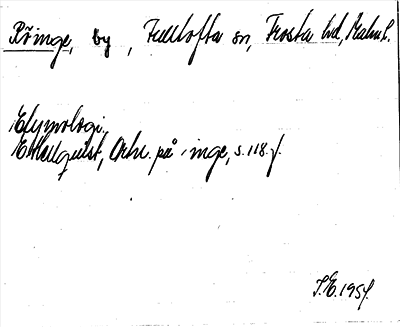 Röinge, by, Fulltofta sn, Frosta hd, Malm. l.
Etymologi,
E. Hellquist, Ortn. på -inge, s. 118. f.
S. E. 1954.